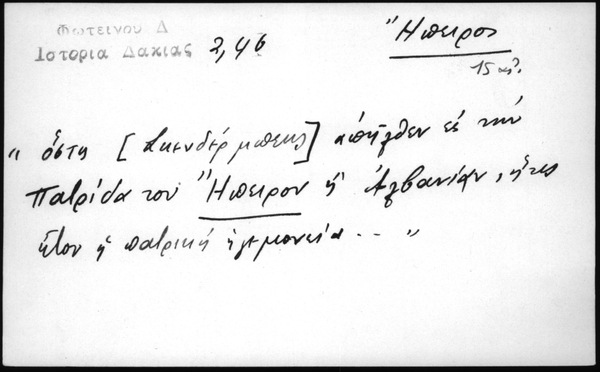 Φωτεινου Δ
Ιστορια Δακιας 2,46
Ήπειρος
15 αἰ.
" ὅστις [Σκενδέρμπεης] ἀπῆλθεν εἰς τὴν
πατρίδα του Ήπειρον ἢ Ἀλβανίαν, ἥτις
ἦτον ἡ πατρική ἡγεμονεία... "